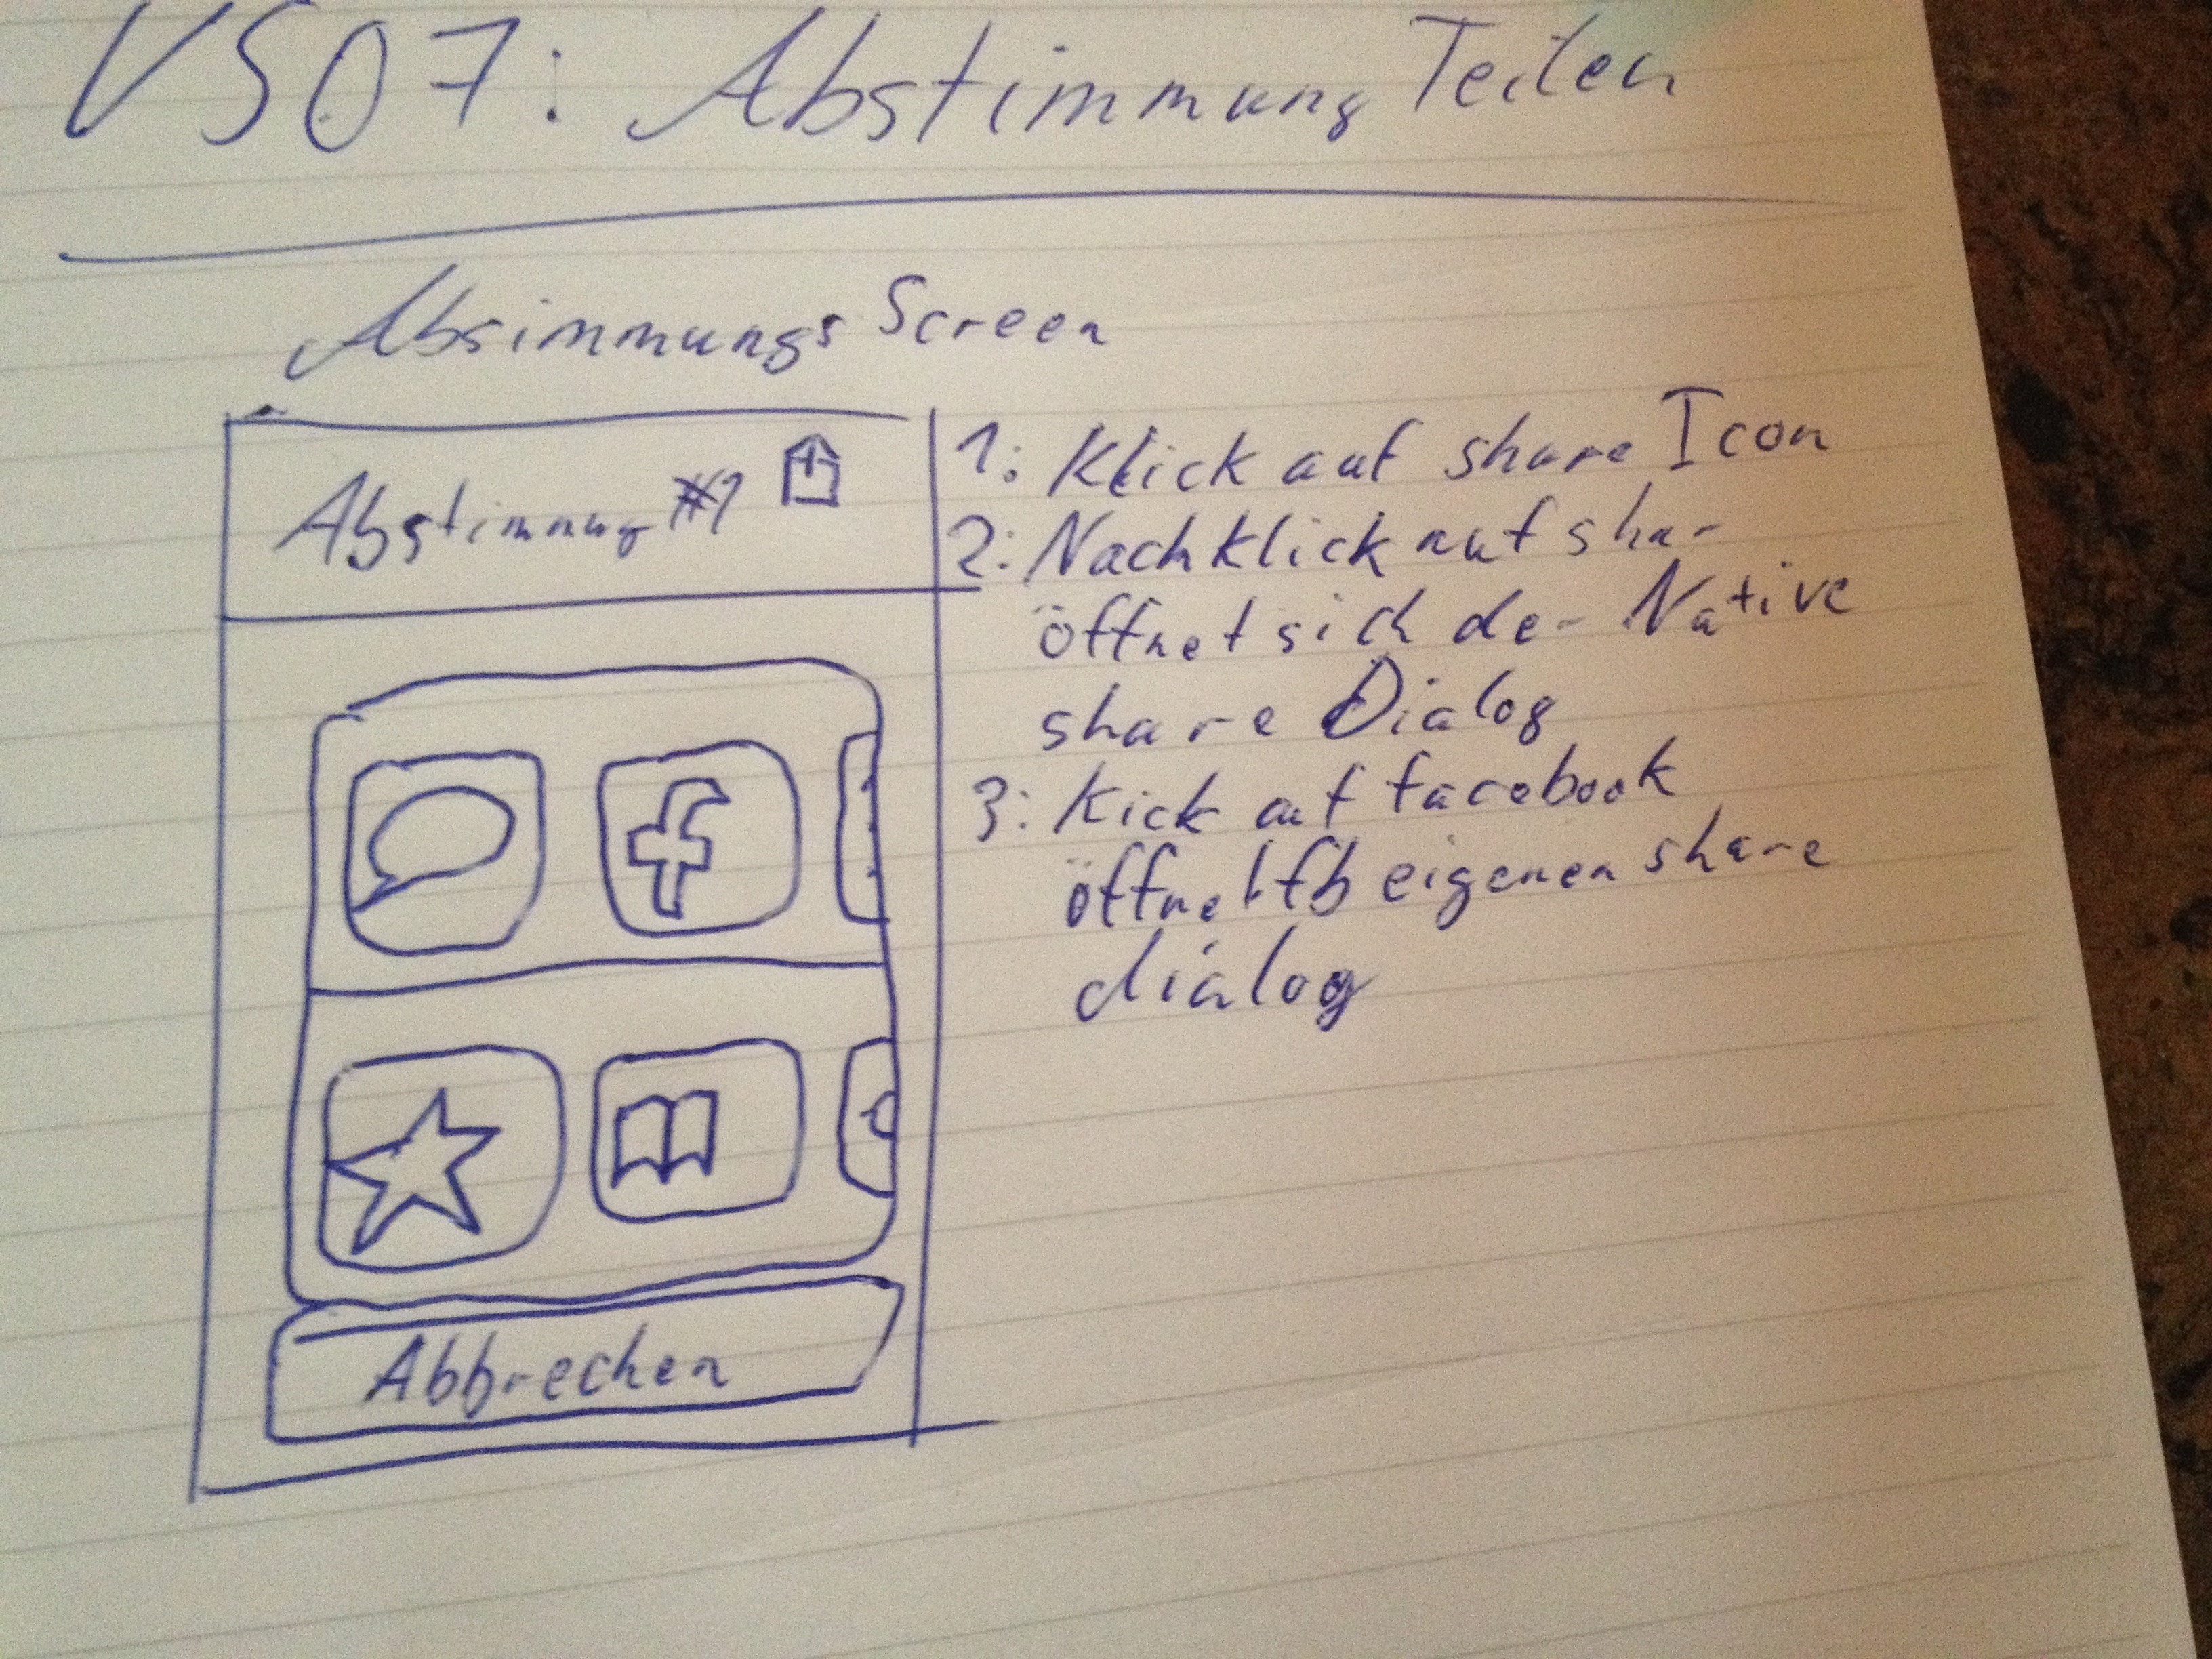 VS07: Abstimmung Teilen
Absimmungs Screen
Abstimmung #1
1: Klick auf share Icon
2: Nach klick auf shar
öffnet sich der Native
share Dialog
3: Kick auf facebook
öffnet fb eigenen share
dialog
f
Abbrechen